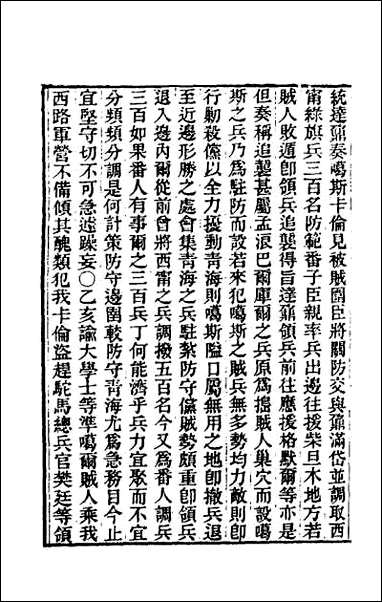 統達鼐奏噶斯卡倫見被賊圍臣將關防交與鼐滿岱並調取西
甯綠旗兵三百名防範番子臣親率兵出邊往援柴旦木地方若
賊人敗遁卽領兵追襲得旨達鼐領兵前往應援格默爾等亦是
但奏稱追襲甚屬孟浪巴爾庫爾之兵原為搗賊人巢穴而設噶
斯之兵乃為駐防而設若來犯噶斯之賊兵無多勢均力敵則卽
行勦殺儻以全力擾動青海則噶斯隘口屬無用之地卽撤兵退
至近邊形勝之處會集青海之兵駐紮防守儻賊勢頗重卽領兵
退入邊內爾從前曾將西甯之兵調撥五百名今又為番人調兵
三百如果番人有事爾之三百兵丁何能濟乎兵力宜聚而不宜
分頻頻分調是何計策防守邊圉較防守青海尤為急務目今止
宜堅守切不可急遽躁妄○乙亥諭大學士等準噶爾賊人乘我
西路軍營不備傾其醜類犯我卡倫盜趕駝馬總兵官樊廷等領